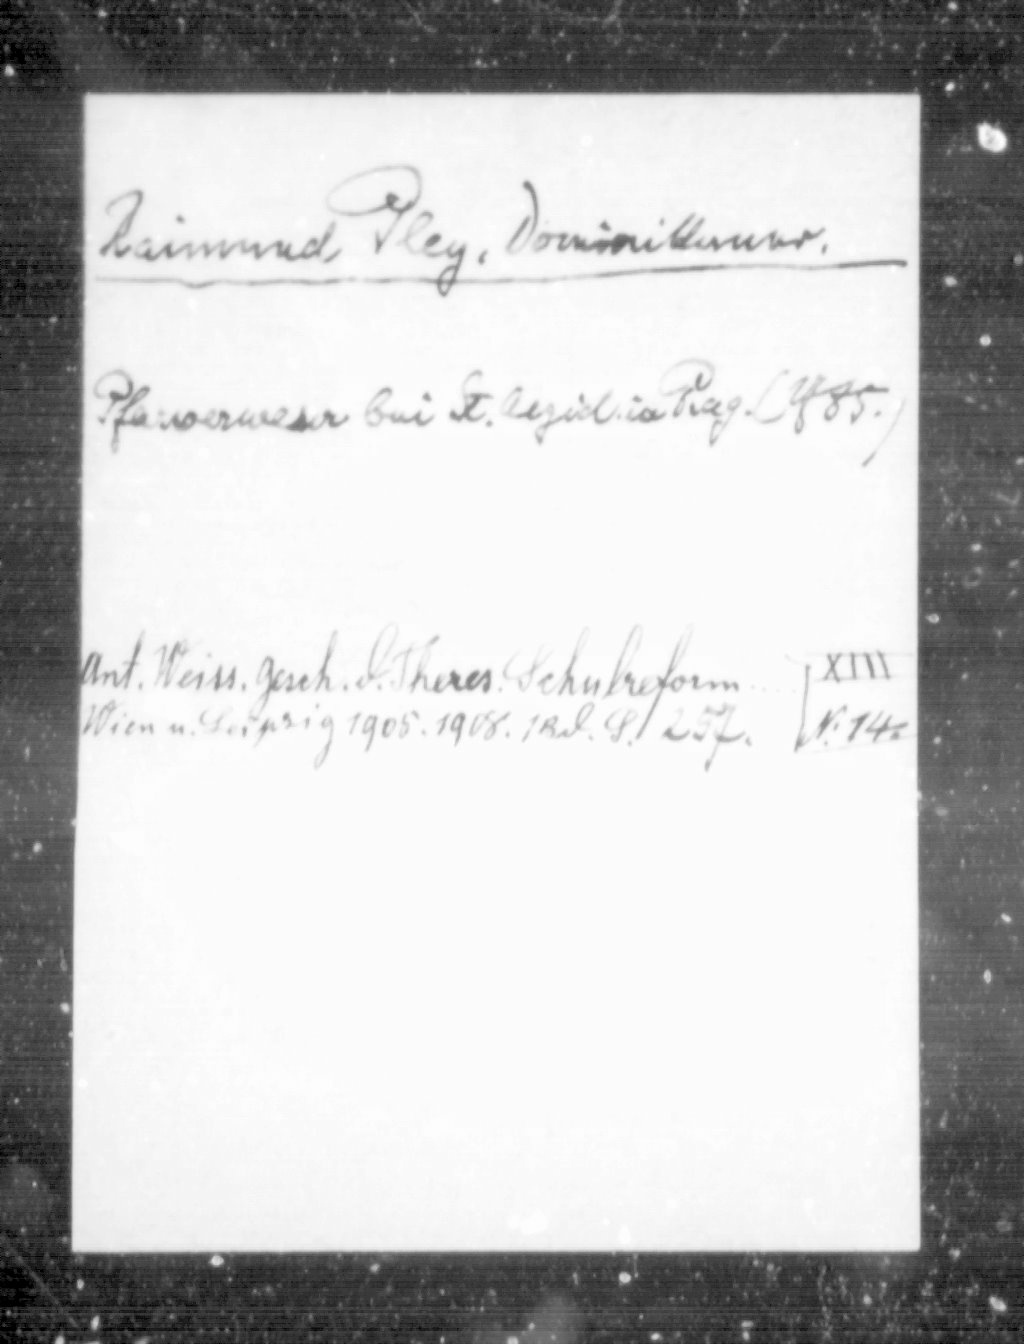 Raimund Pley, Dominikaner.
Pfarrverweser bei St. Aegid. in Prag. (1785.)
Ant. Weiss. Gesch. d. Theres. Schulreform
Wien u. Leipzig 1905. 1908. 1 Bd. S. 257.
XIII
N. 14a